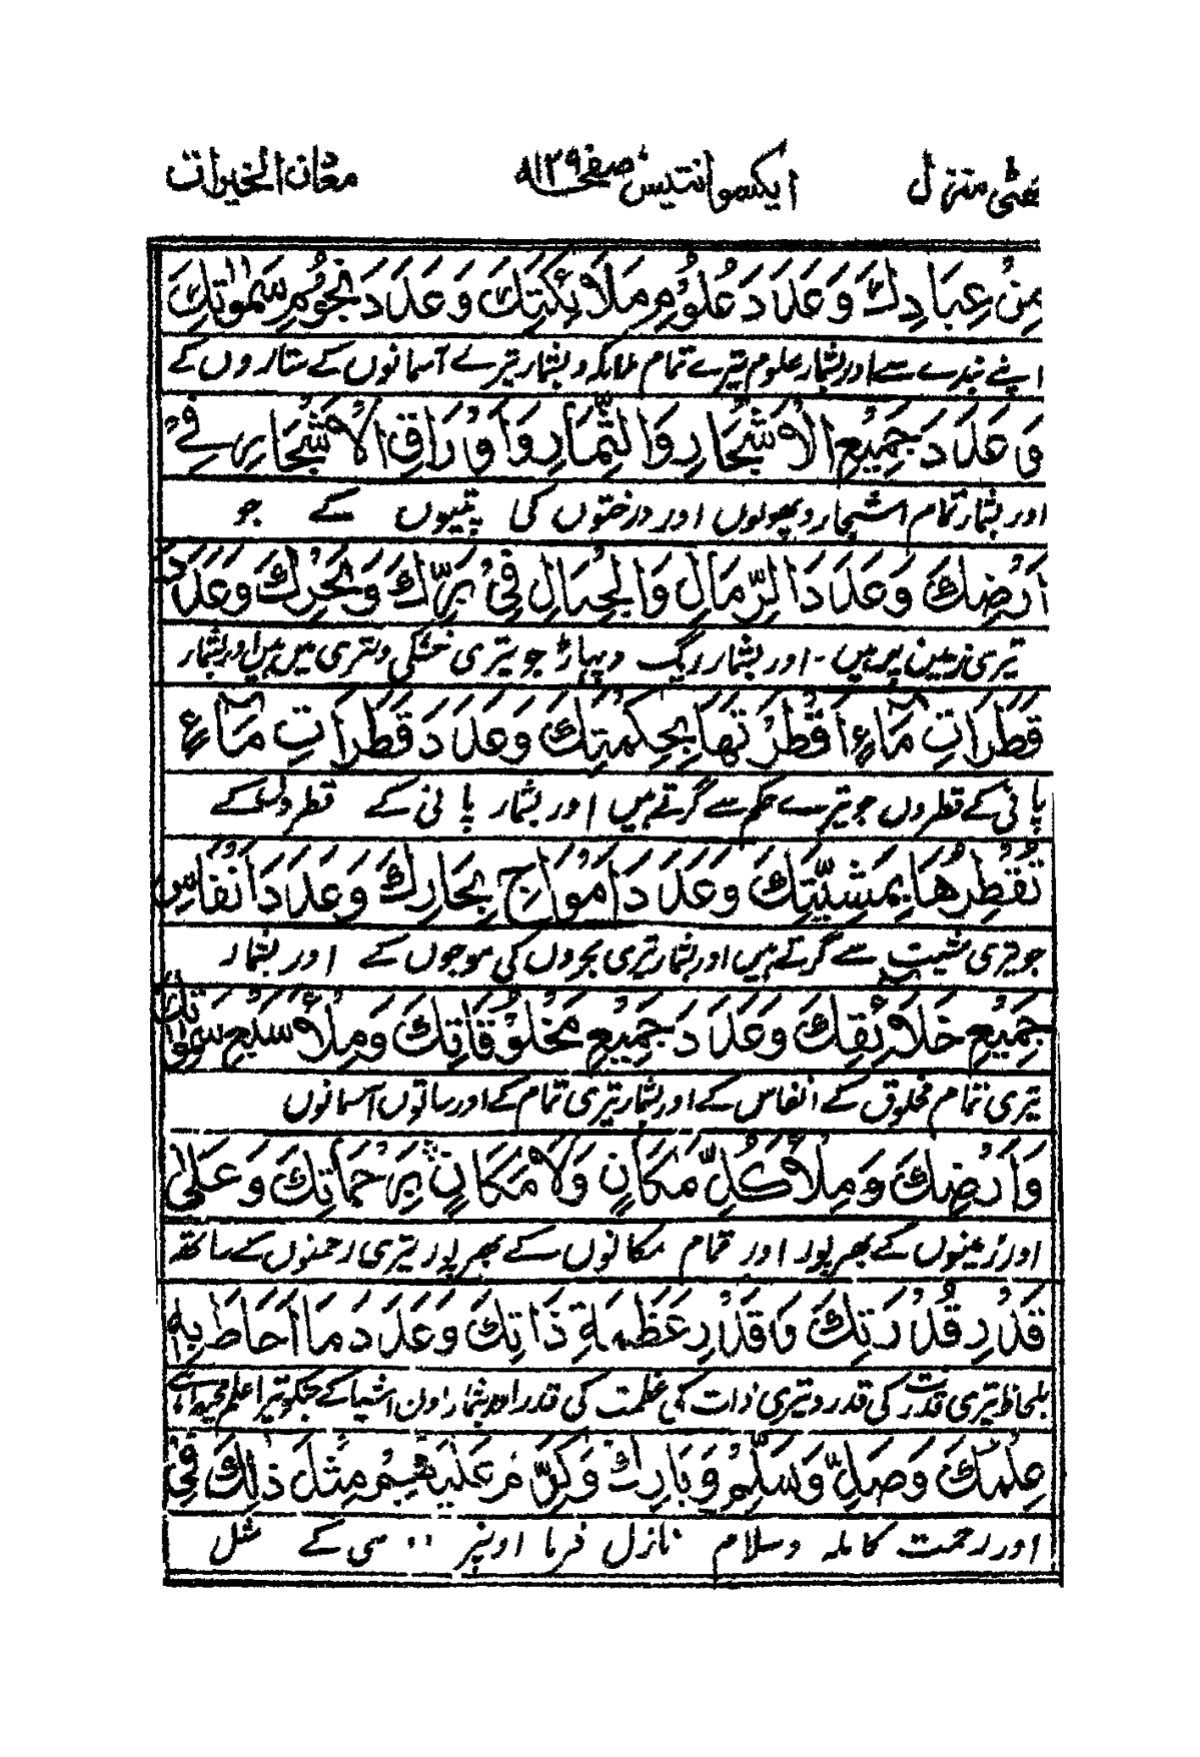 چھٹی منزل ایکسوانتیس صفحہ ۱۲۹ معان الخیرات
مِنْ عِبَادِكَ وَعَدَدَ عُلُوْمِ مَلَائِكَتِكَ وَعَدَدَ نُجُوْمِ سَمٰوٰتِكَ
اپنے بندے سے اور بشمار علوم تیرے تمام ملائکہ و بشمار تیرے آسمانوں کے ستاروں کے
وَعَدَدَ جَمِيْعِ الْاَشْجَارِ وَالثِّمَارِ وَاَوْرَاقِ الْاَشْجَارِ فِيْ
اور بشمار تمام اشجار و پھولوں اور درختوں کی پتیوں کے جو
اَرْضِكَ وَعَدَدَ الرِّمَالِ وَالْجِبَالِ فِيْ بَرِّكَ وَبَحْرِكَ وَعَدَدَ
تیری زمین پر ہیں ۔ اور بشمار ریگ و پہاڑ جو تیری خشکی و تری میں ہیں اور بشمار
قَطَرَاتِ مَآءٍ اَقْطَرْتَهَا بِحِكْمَتِكَ وَعَدَدَ قَطَرَاتِ مَآءٍ
پانی کے قطروں جو تیرے حکم سے گرتے ہیں اور بشمار پانی کے قطروں کے
تُقْطِرُهَا بِمَشِيَّتِكَ وَعَدَدَ اَمْوَاجِ بِحَارِكَ وَعَدَدَ اَنْفَاسِ
جو تیری مشیت سے گرتے ہیں اور بشمار تیری بحروں کی موجوں کے اور بشمار
جَمِيْعِ خَلَائِقِكَ وَعَدَدَ جَمِيْعِ مَخْلُوْقَاتِكَ وَمِلْأَ سَبْعِ سَمٰوٰتِكَ
تیری تمام مخلوق کے انفاس کے اور بشمار تیری تمام کے اور ساتوں آسمانوں
وَاَرْضِكَ وَمِلْأَ كُلِّ مَكَانٍ وَلَا مَكَانٍ بِرَحْمَاتِكَ وَعَلٰى
اور زمینوں کے بھرپور اور تمام مکانوں کے بھرپور تیری رحمتوں کے ساتھ
قَدْرِ قُدْرَتِكَ وَقَدْرِ عَظْمَةِ ذَاتِكَ وَعَدَدَ مَا اَحَاطَ بِهٖ
بلحاظ تیری قدرت کی قدر و تیری ذات کی عظمت کی قدر اور بشمار اون اشیا کے جسکو تیرا علم محیط ہے
عِلْمُكَ وَصَلِّ وَسَلِّمْ وَبَارِكْ وَكَرِّمْ عَلَيْهِمْ مِثْلَ ذٰلِكَ فِيْ
اور رحمت کاملہ و سلام نازل فرما اونپر سی کے مثل